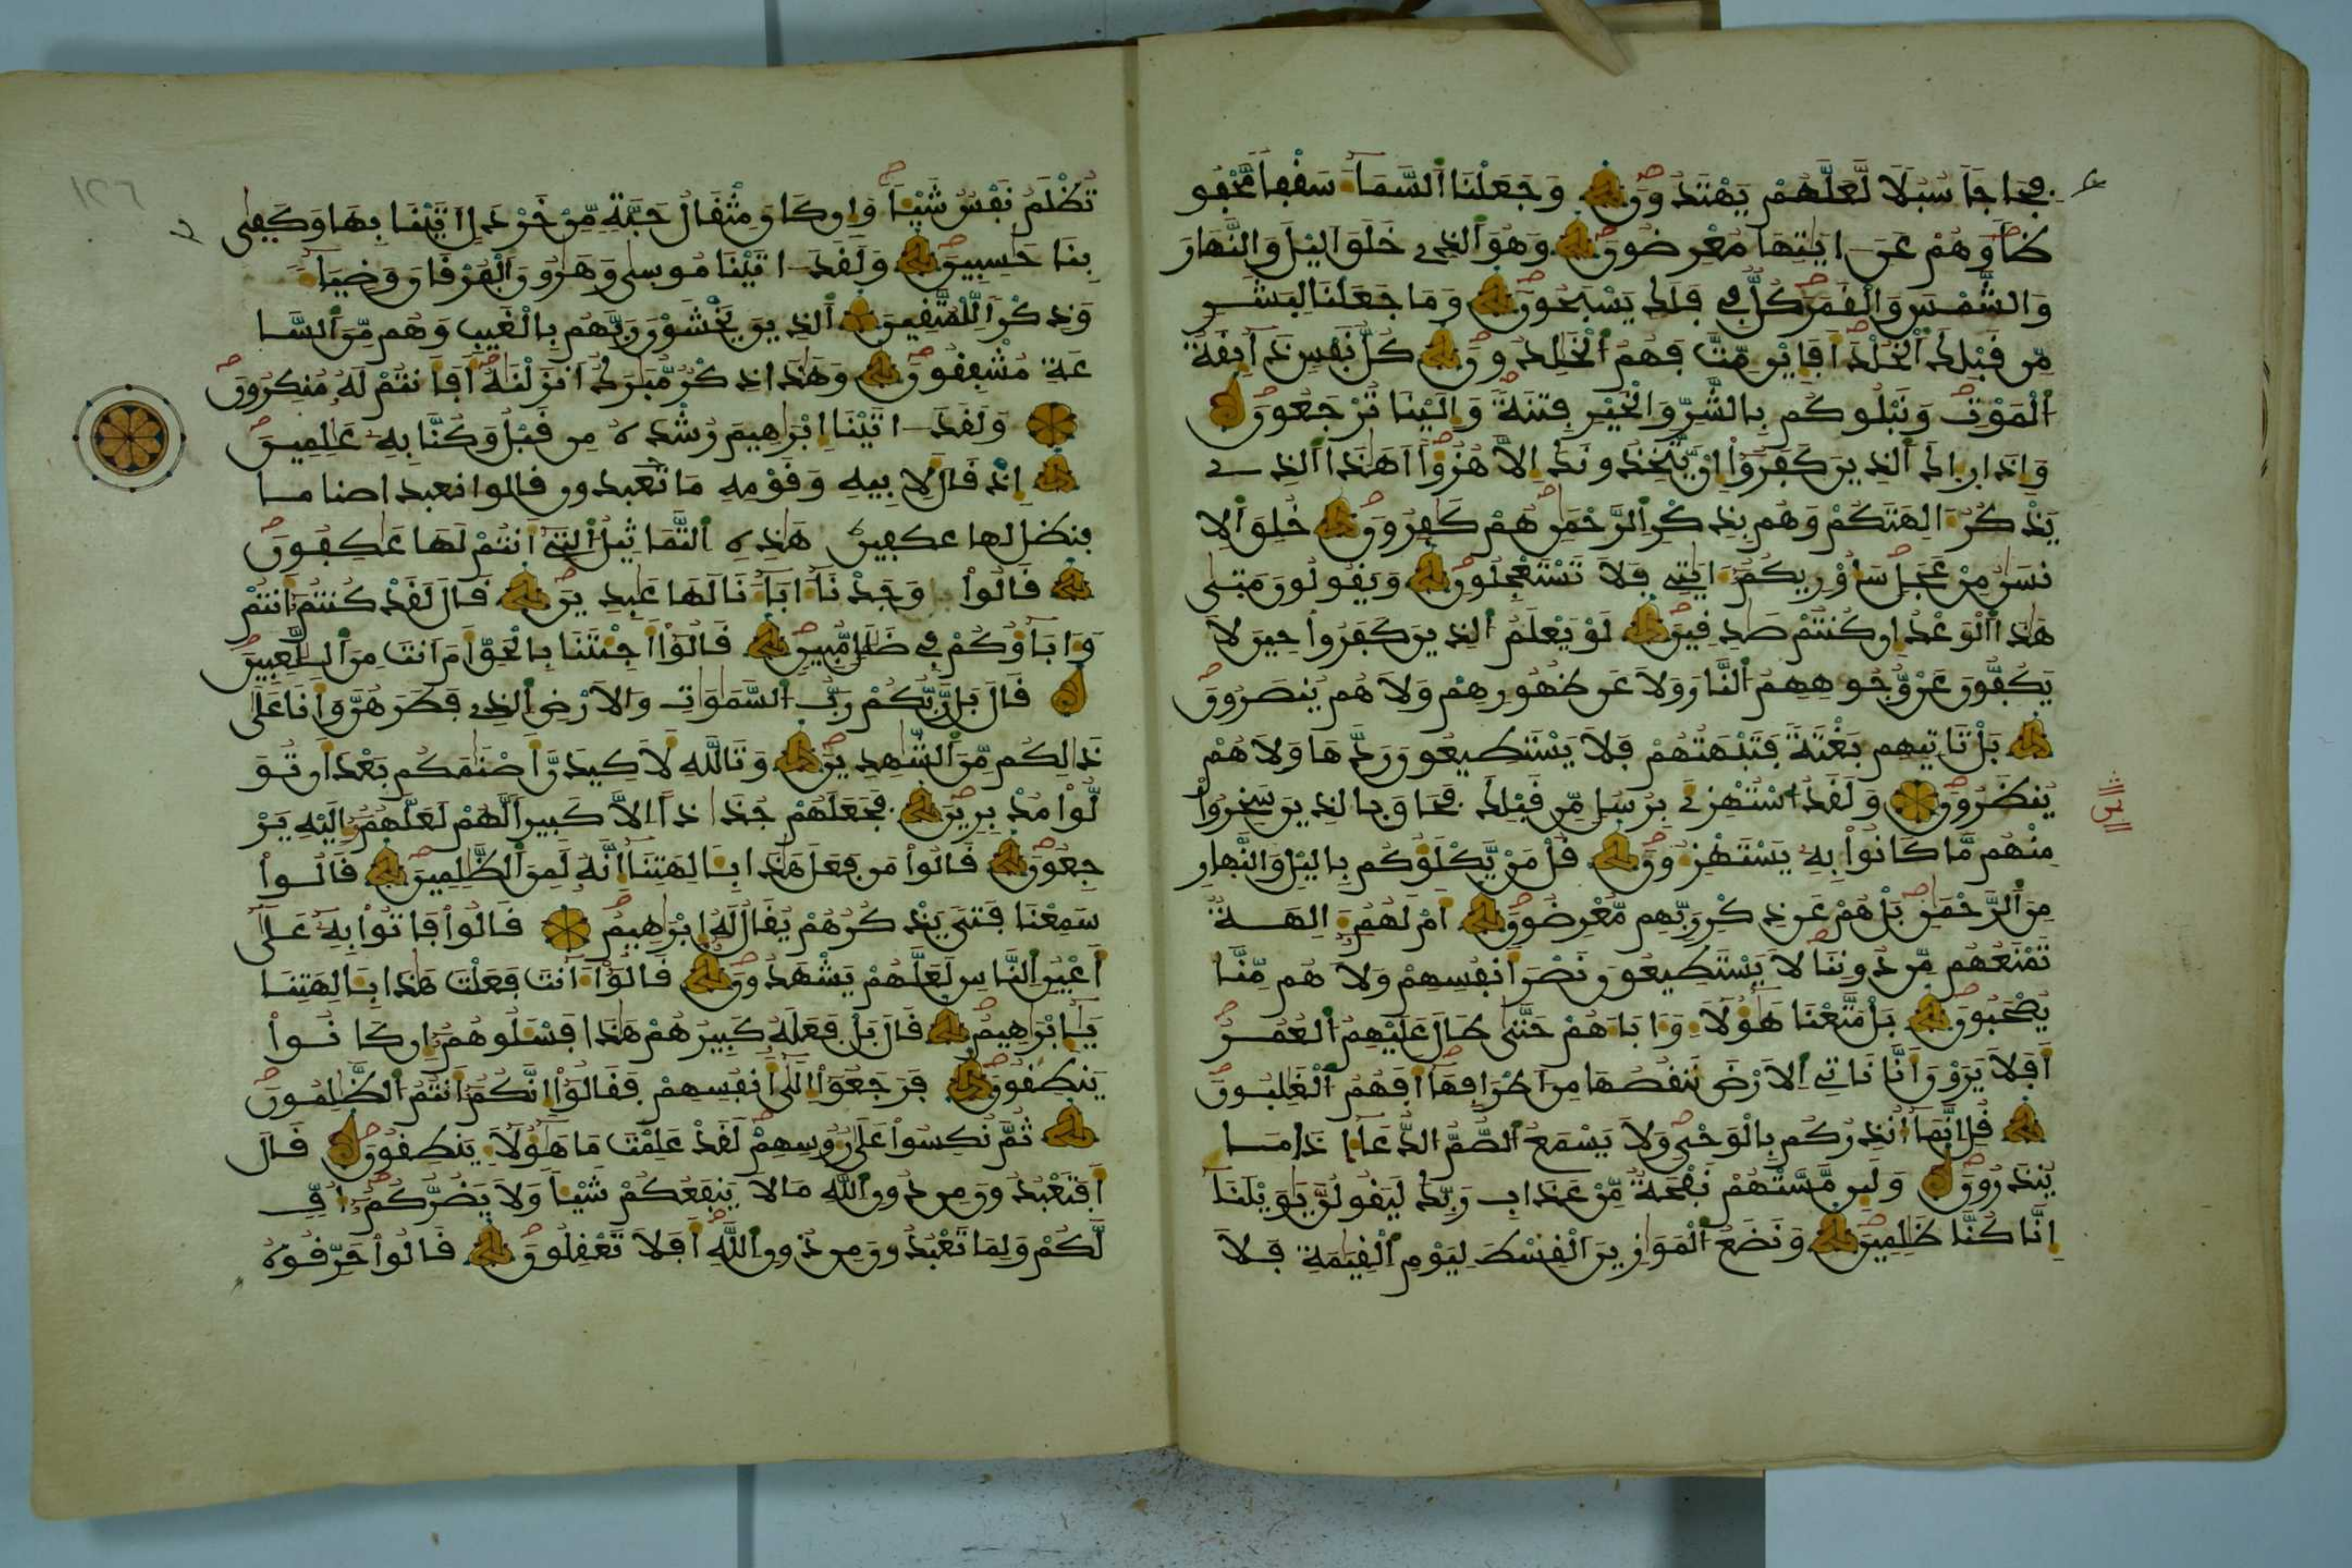 فجاجا سبلا لعلهم يهتدون وجعلنا السماء سقفا محفو
ظا وهم عن ايتها معرضون وهو الذي خلق اليل والنهار
والشمس والقمر كل في فلك يسبحون وما جعلنا لبشر
من قبلك الخلد افاين مت فهم الخلدون كل نفس ذائقة
الموت ونبلوكم بالشر والخير فتنة والينا ترجعون
واذا راك الذين كفروا ان يتخذونك الا هزؤا اهذا الذي
يذكر الهتكم وهم بذكر الرحمن هم كفرون خلق الا
نسن من عجل ساوريكم ايتي فلا تستعجلون ويقولون متى
هذا الوعد ان كنتم صدقين لو يعلم الذين كفروا حين لا
يكفون عن وجوههم النار ولا عن ظهورهم ولا هم ينصرون
بل تاتيهم بغتة فتبهتهم فلا يستطيعون ردها ولا هم
ينظرون ولقد استهزئ برسل من قبلك فحاق بالذين سخروا
منهم ما كانوا به يستهزءون قل من يكلؤكم باليل والنهار
من الرحمن بل هم عن ذكر ربهم معرضون ام لهم الهة
تمنعهم من دوننا لا يستطيعون نصر انفسهم ولا هم منا
يصحبون بل متعنا هؤلاء واباءهم حتى طال عليهم العمر
افلا يرون انا ناتي الارض ننقصها من اطرافها افهم الغلبون
قل انما انذركم بالوحي ولا يسمع الصم الدعاء اذا ما
ينذرون ولئن مستهم نفحة من عذاب ربك ليقولن يويلنا
انا كنا ظلمين ونضع الموازين القسط ليوم القيمة فلا
١٢٦
تظلم نفس شيئا وان كان مثقال حبة من خردل اتينا بها وكفى
بنا حسبين ولقد اتينا موسى وهرون الفرقان وضياء
وذكرا للمتقين الذين يخشون ربهم بالغيب وهم من السا
عة مشفقون وهذا ذكر مبرك انزلنه افانتم له منكرون
ولقد اتينا ابرهيم رشده من قبل وكنا به علمين
اذ قال لابيه وقومه ما تعبدون قالوا نعبد اصناما
فنظل لها عكفين هذه التماثيل التي انتم لها عكفون
قالوا وجدنا اباءنا لها عبدين قال لقد كنتم انتم
واباؤكم في ضلل مبين قالوا اجئتنا بالحق ام انت من اللعبين
قال بل ربكم رب السموات والارض الذي فطرهن وانا على
ذالكم من الشهدين وتالله لاكيدن اصنمكم بعد ان تو
لوا مدبرين فجعلهم جذاذا الا كبيرا لهم لعلهم اليه ير
جعون قالوا من فعل هذا بالهتنا انه لمن الظلمين قالوا
سمعنا فتى يذكرهم يقال له ابرهيم قالوا فاتوا به على
اعين الناس لعلهم يشهدون قالوا ءانت فعلت هذا بالهتنا
يابرهيم قال بل فعله كبيرهم هذا فسلوهم ان كانوا
ينطقون فرجعوا الى انفسهم فقالوا انكم انتم الظلمون
ثم نكسوا على رءوسهم لقد علمت ما هؤلاء ينطقون قال
افتعبدون من دون الله ما لا ينفعكم شيئا ولا يضركم اف
لكم ولما تعبدون من دون الله افلا تعقلون قالوا حرقوه